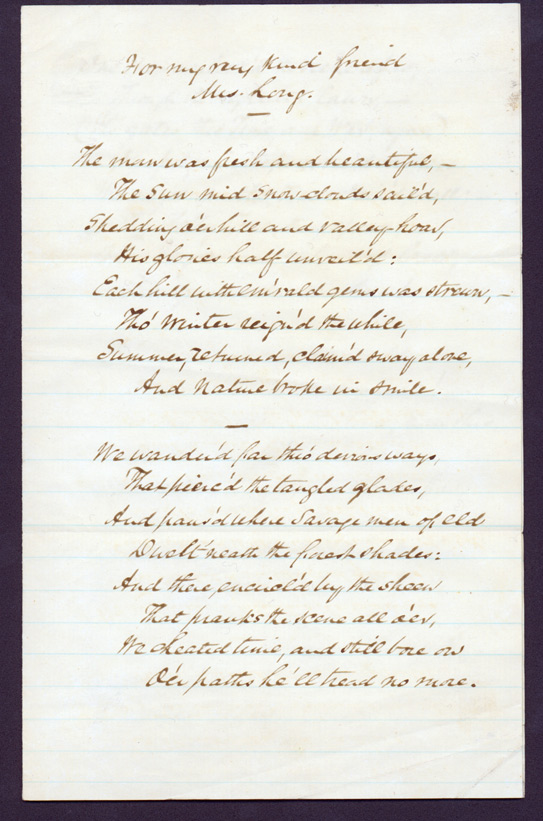 For my very kind friend
Mrs. Long.
The morn was fresh and beautiful, –
The Sun mid Snow clouds sail'd,
Shedding o'er hill and valley hoar,
His glories half unveil'd:
Each hill with em'rald gems was strewn, –
Tho' Winter reign'd the while,
Summer, returned, claim'd sway alone,
And Nature broke in smile.
We wander'd far thro' devious ways,
That pierc'd the tangled glades,
And paus'd where Savage men of Eld
Dwelt 'neath the forest shades:
And there encircl'd by the sheen
That pranks the scene all o'er,
We cheated time, and still bore on
O'er paths he'll tread no more.